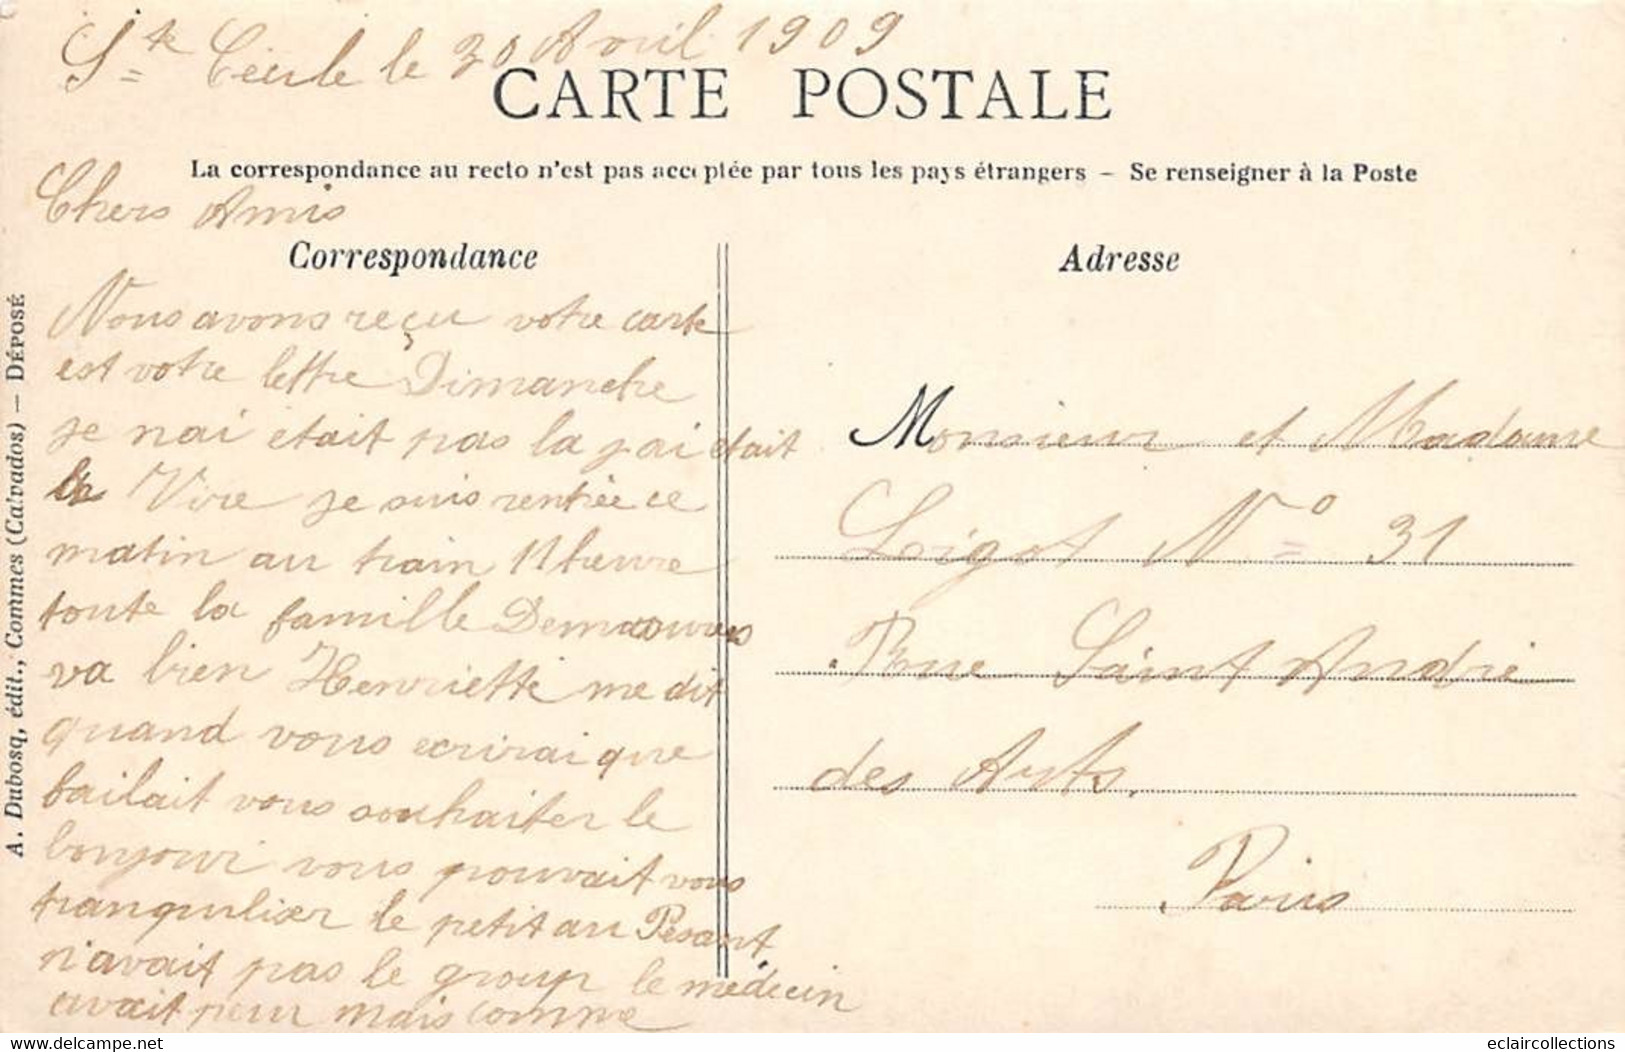 Ste Cécile le 20 Avril 1909
CARTE POSTALE
La correspondance au recto n'est pas acceptée par tous les pays étrangers – Se renseigner à la Poste
Chers Amis
Correspondance
Nous avons reçu votre carte
est votre lettre Dimanche
je nai était pas la jai était
a Vire je suis rentrée ce
matin au train 11 heure
toute la famille
va bien Henriette me dit
quand vous ecrirai que
failait vous souhaiter le
bonjour vous pouvait vous
tranquiliser le petit au Pesant
n'avait pas le group le médecin
avait peur mais comme
Adresse
Monsieur et Madame
Ligot No 31
Rue Saint André
des Arts.
Paris
A. Dubosq, édit., Commes (Calvados) — DÉPOSÉ
eclaircollections
delcampe.net